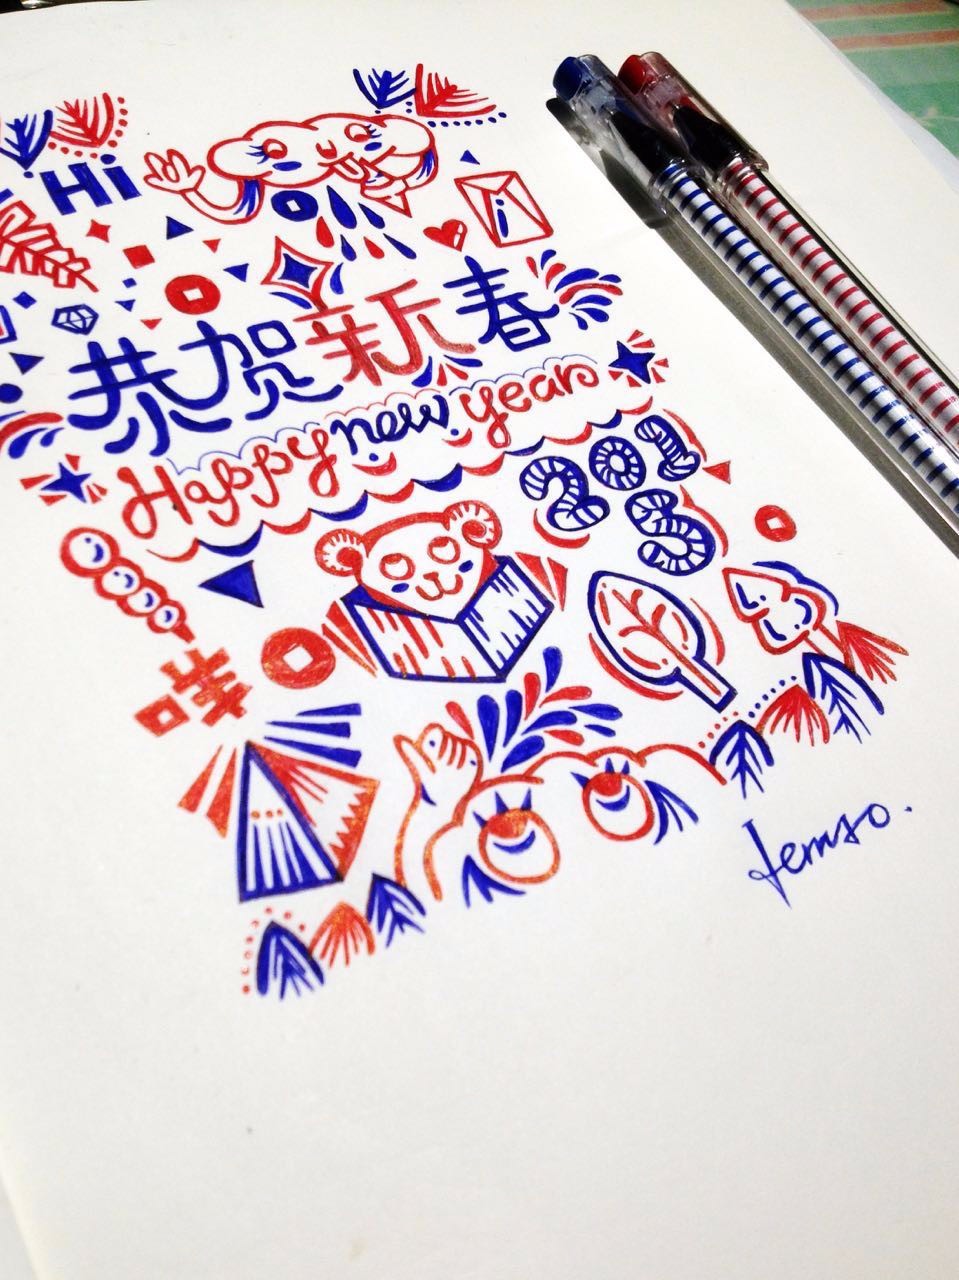 Hi
恭贺新春
Happy new year
201
5